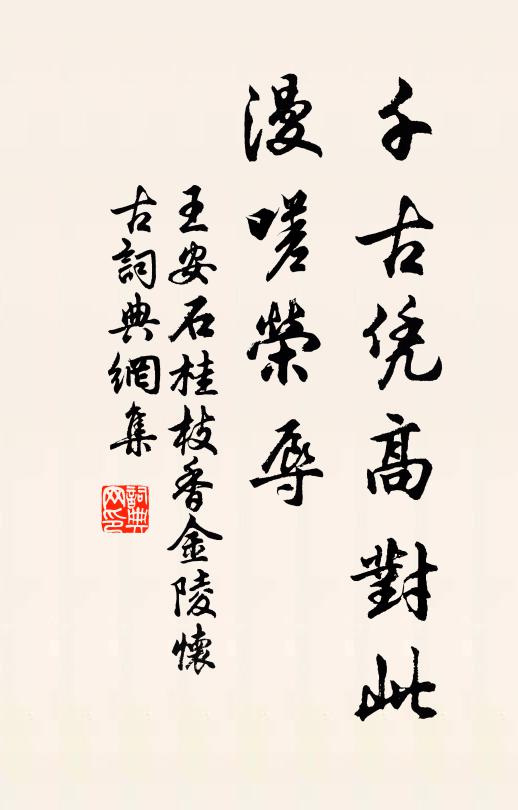 千古凭高對此
漫嗟榮辱
王安石桂枝香金陵懷
古詞典網集
詞典
网印